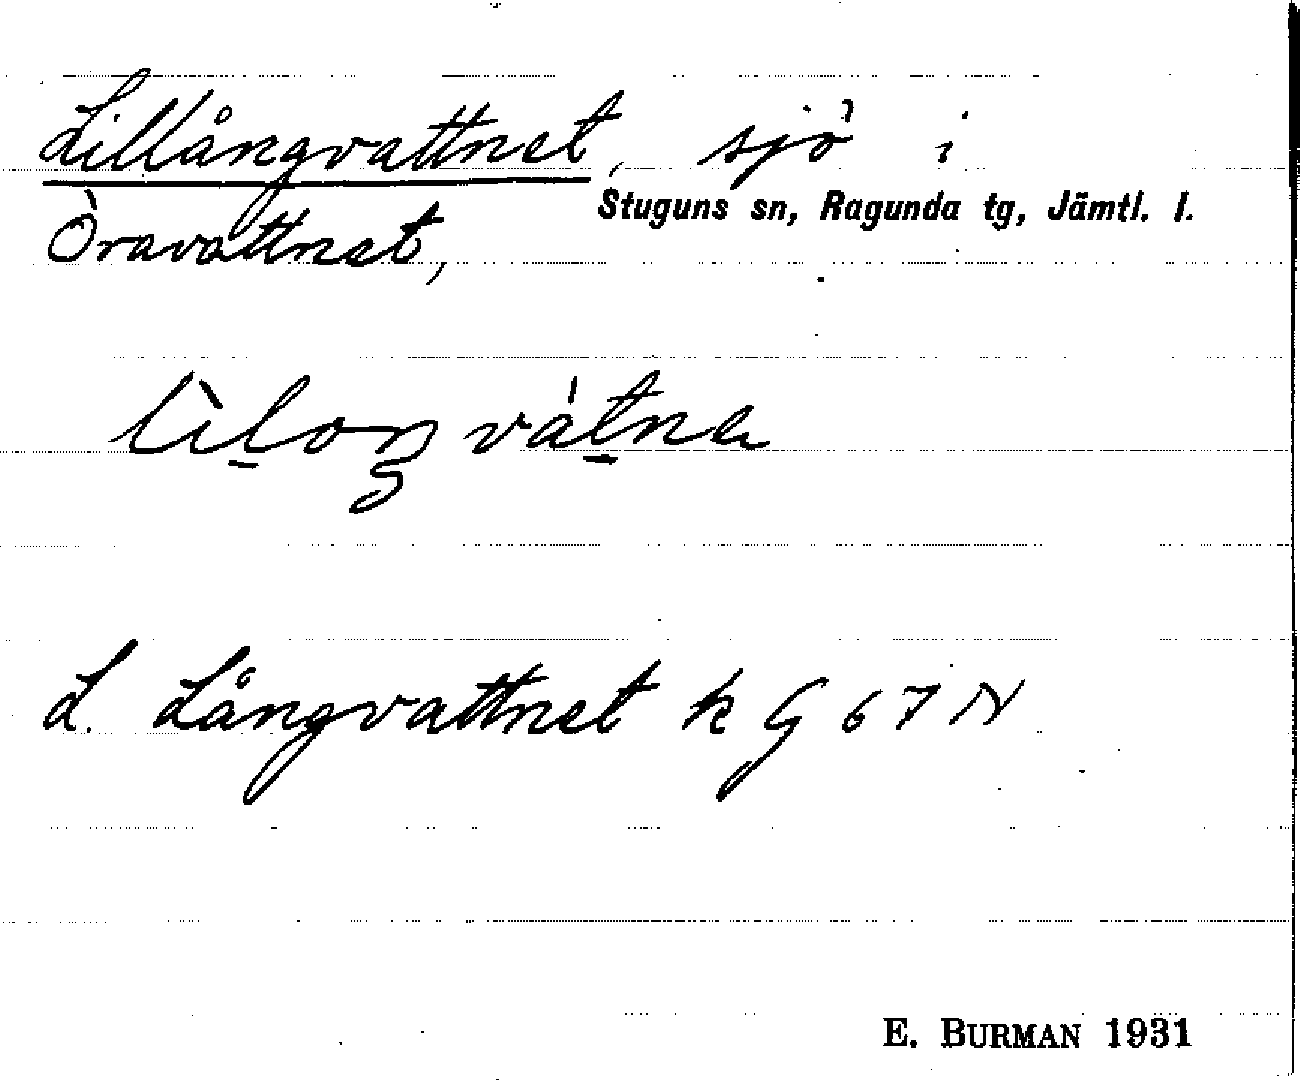 Lillångvattnet, sjö i
Stuguns sn, Ragunda tg, Jämtl. l.
Öravattnet,
lìloŋvátna
L. Långvattnet k G 67 N
E. BURMAN 1931